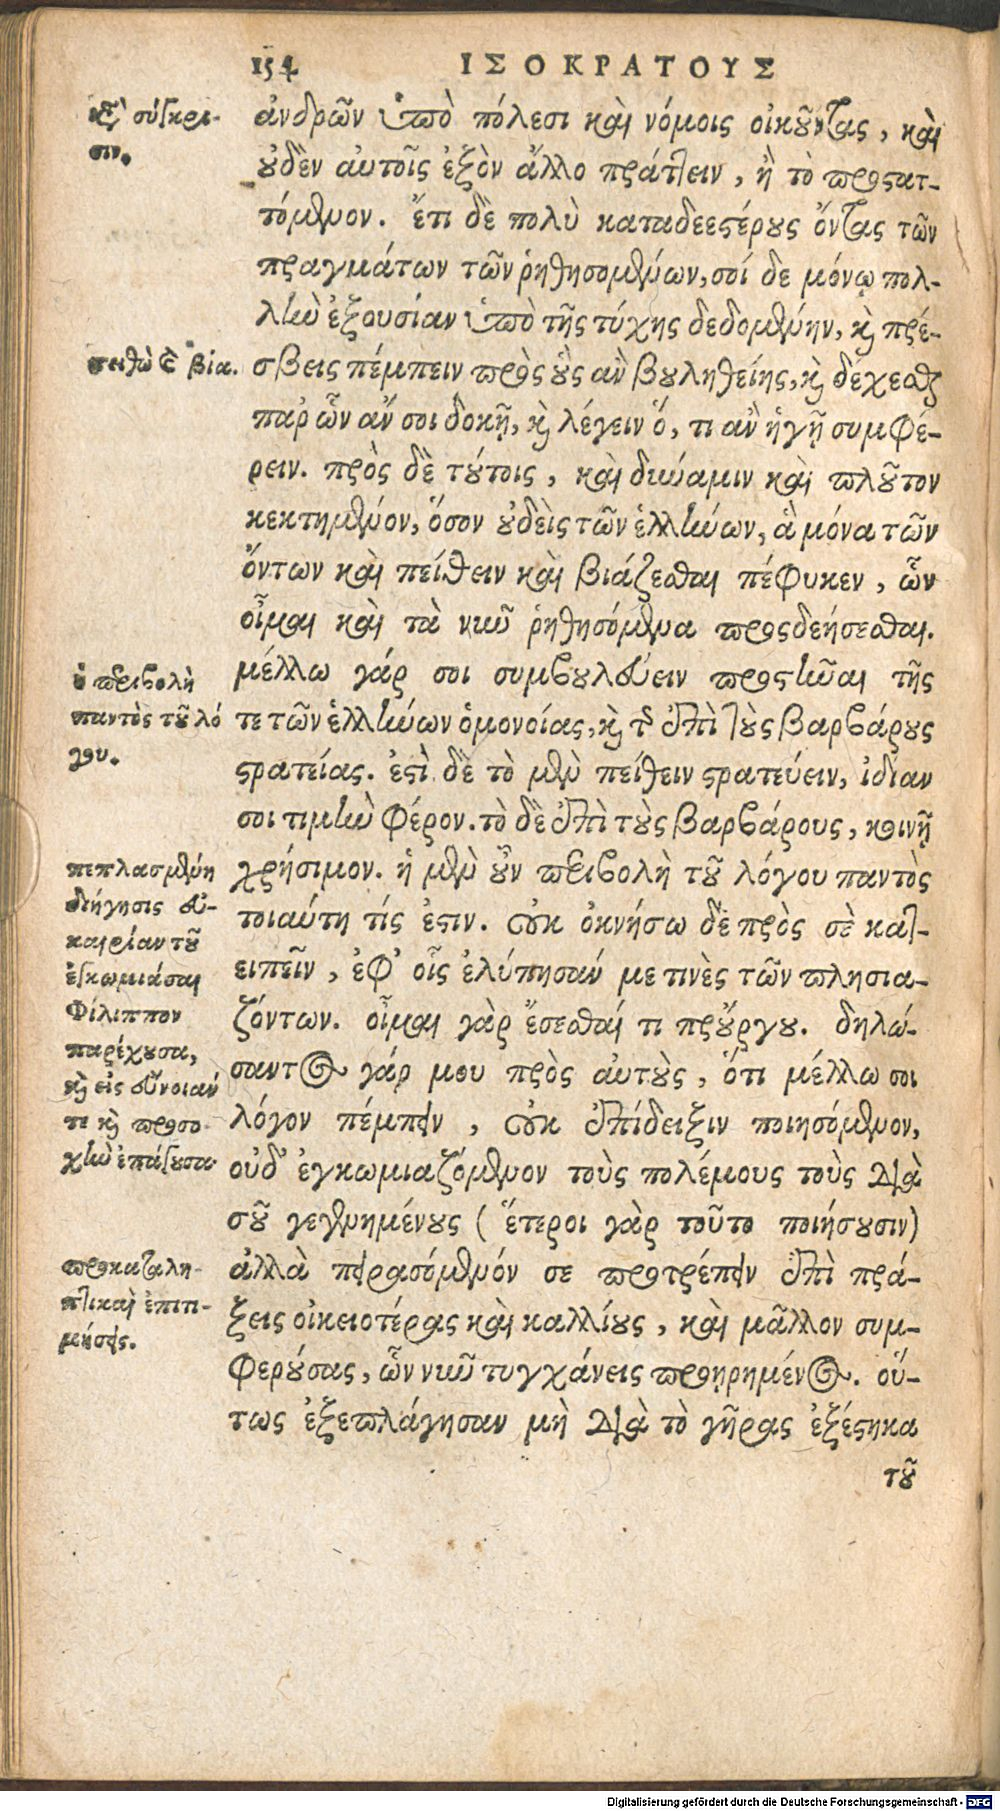 154 ΙΣΟΚΡΑΤΟΥΣ
ἀνδρῶν ὑπὸ πόλεσι καὶ νόμοις οἰκοῦντας, καὶ
οὐδὲν αὐτοῖς ἐξὸν ἄλλο πράττειν, ἢ τὸ προςατ-
τόμενον. ἔτι δὲ πολὺ καταδεεστέρους ὄντας τῶν
πραγμάτων τῶν ῥηθησομένων, σοί δε μόνῳ πολ-
λὴν ἐξουσίαν ὑπὸ τῆς τύχης δεδομένην, καὶ πρέ-
σβεις πέμπειν πρὸς οὓς ἂν βουληθείης, καὶ δέχεσθαι
παρ' ὧν ἄν σοι δοκῇ, καὶ λέγειν ὅ, τι ἂν ἡγῇ συμφέ-
ρειν. πρὸς δὲ τούτοις, καὶ δύναμιν καὶ πλοῦτον
κεκτημένον, ὅσον οὐδεὶς τῶν ἑλλήνων, ἃ μόνα τῶν
ὄντων καὶ πείθειν καὶ βιάζεσθαι πέφυκεν, ὧν
οἶμαι καὶ τὰ νῦν ῥηθησόμενα προςδεήσεσθαι.
μέλλω γάρ σοι συμβουλεύειν προςτῆναι τῆς
τε τῶν ἑλλήνων ὁμονοίας, καὶ τῆς ἐπὶ τοὺς βαρβάρους
στρατείας. ἐστὶ δὲ τὸ μὲν πείθειν στρατεύειν, ἰδίαν
σοι τιμὴν φέρον. τὸ δὲ ἐπὶ τοὺς βαρβάρους, κοινῇ
χρήσιμον. ἡ μὲν οὖν περιβολὴ τοῦ λόγου παντὸς
τοιαύτη τίς ἐστιν. οὐκ ὀκνήσω δὲ πρὸς σὲ κατ-
ειπεῖν, ἐφ' οἷς ἐλύπησάν με τινὲς τῶν πλησια-
ζόντων. οἶμαι γὰρ ἔσεσθαί τι προὔργου. δηλώ-
σαντος γάρ μου πρὸς αὐτοὺς, ὅτι μέλλω σοι
λόγον πέμπειν, οὐκ ἐπίδειξιν ποιησόμενον,
οὐδ' ἐγκωμιαζόμενον τοὺς πολέμους τοὺς διὰ
σοῦ γεγενημένους (ἕτεροι γὰρ τοῦτο ποιήσουσιν)
ἀλλὰ πειρασόμενόν σε προτρέπειν ἐπὶ πρά-
ξεις οἰκειοτέρας καὶ καλλίους, καὶ μᾶλλον συμ-
φερούσας, ὧν νῦν τυγχάνεις προῃρημένος. οὕ-
τως ἐξεπλάγησαν μὴ διὰ τὸ γῆρας ἐξέστηκα
τοῦ
καὶ σύγκρι-
σιν.
πειθὼ καὶ βία.
ἡ περιβολὴ
παντὸς τοῦ λό
γου.
πεπλασμένη
διήγησις εὐ-
καιρίαν τοῦ
ἐγκωμιάσαι
Φίλιππον
παρέχουσα,
καὶ εἰς εὔνοιάν
τε καὶ προσο-
χὴν ἐπάγουσα
προκαταλη-
πτικαὶ ἐπιτι-
μήσεις.
Digitalisierung gefördert durch die Deutsche Forschungsgemeinschaft - DFG